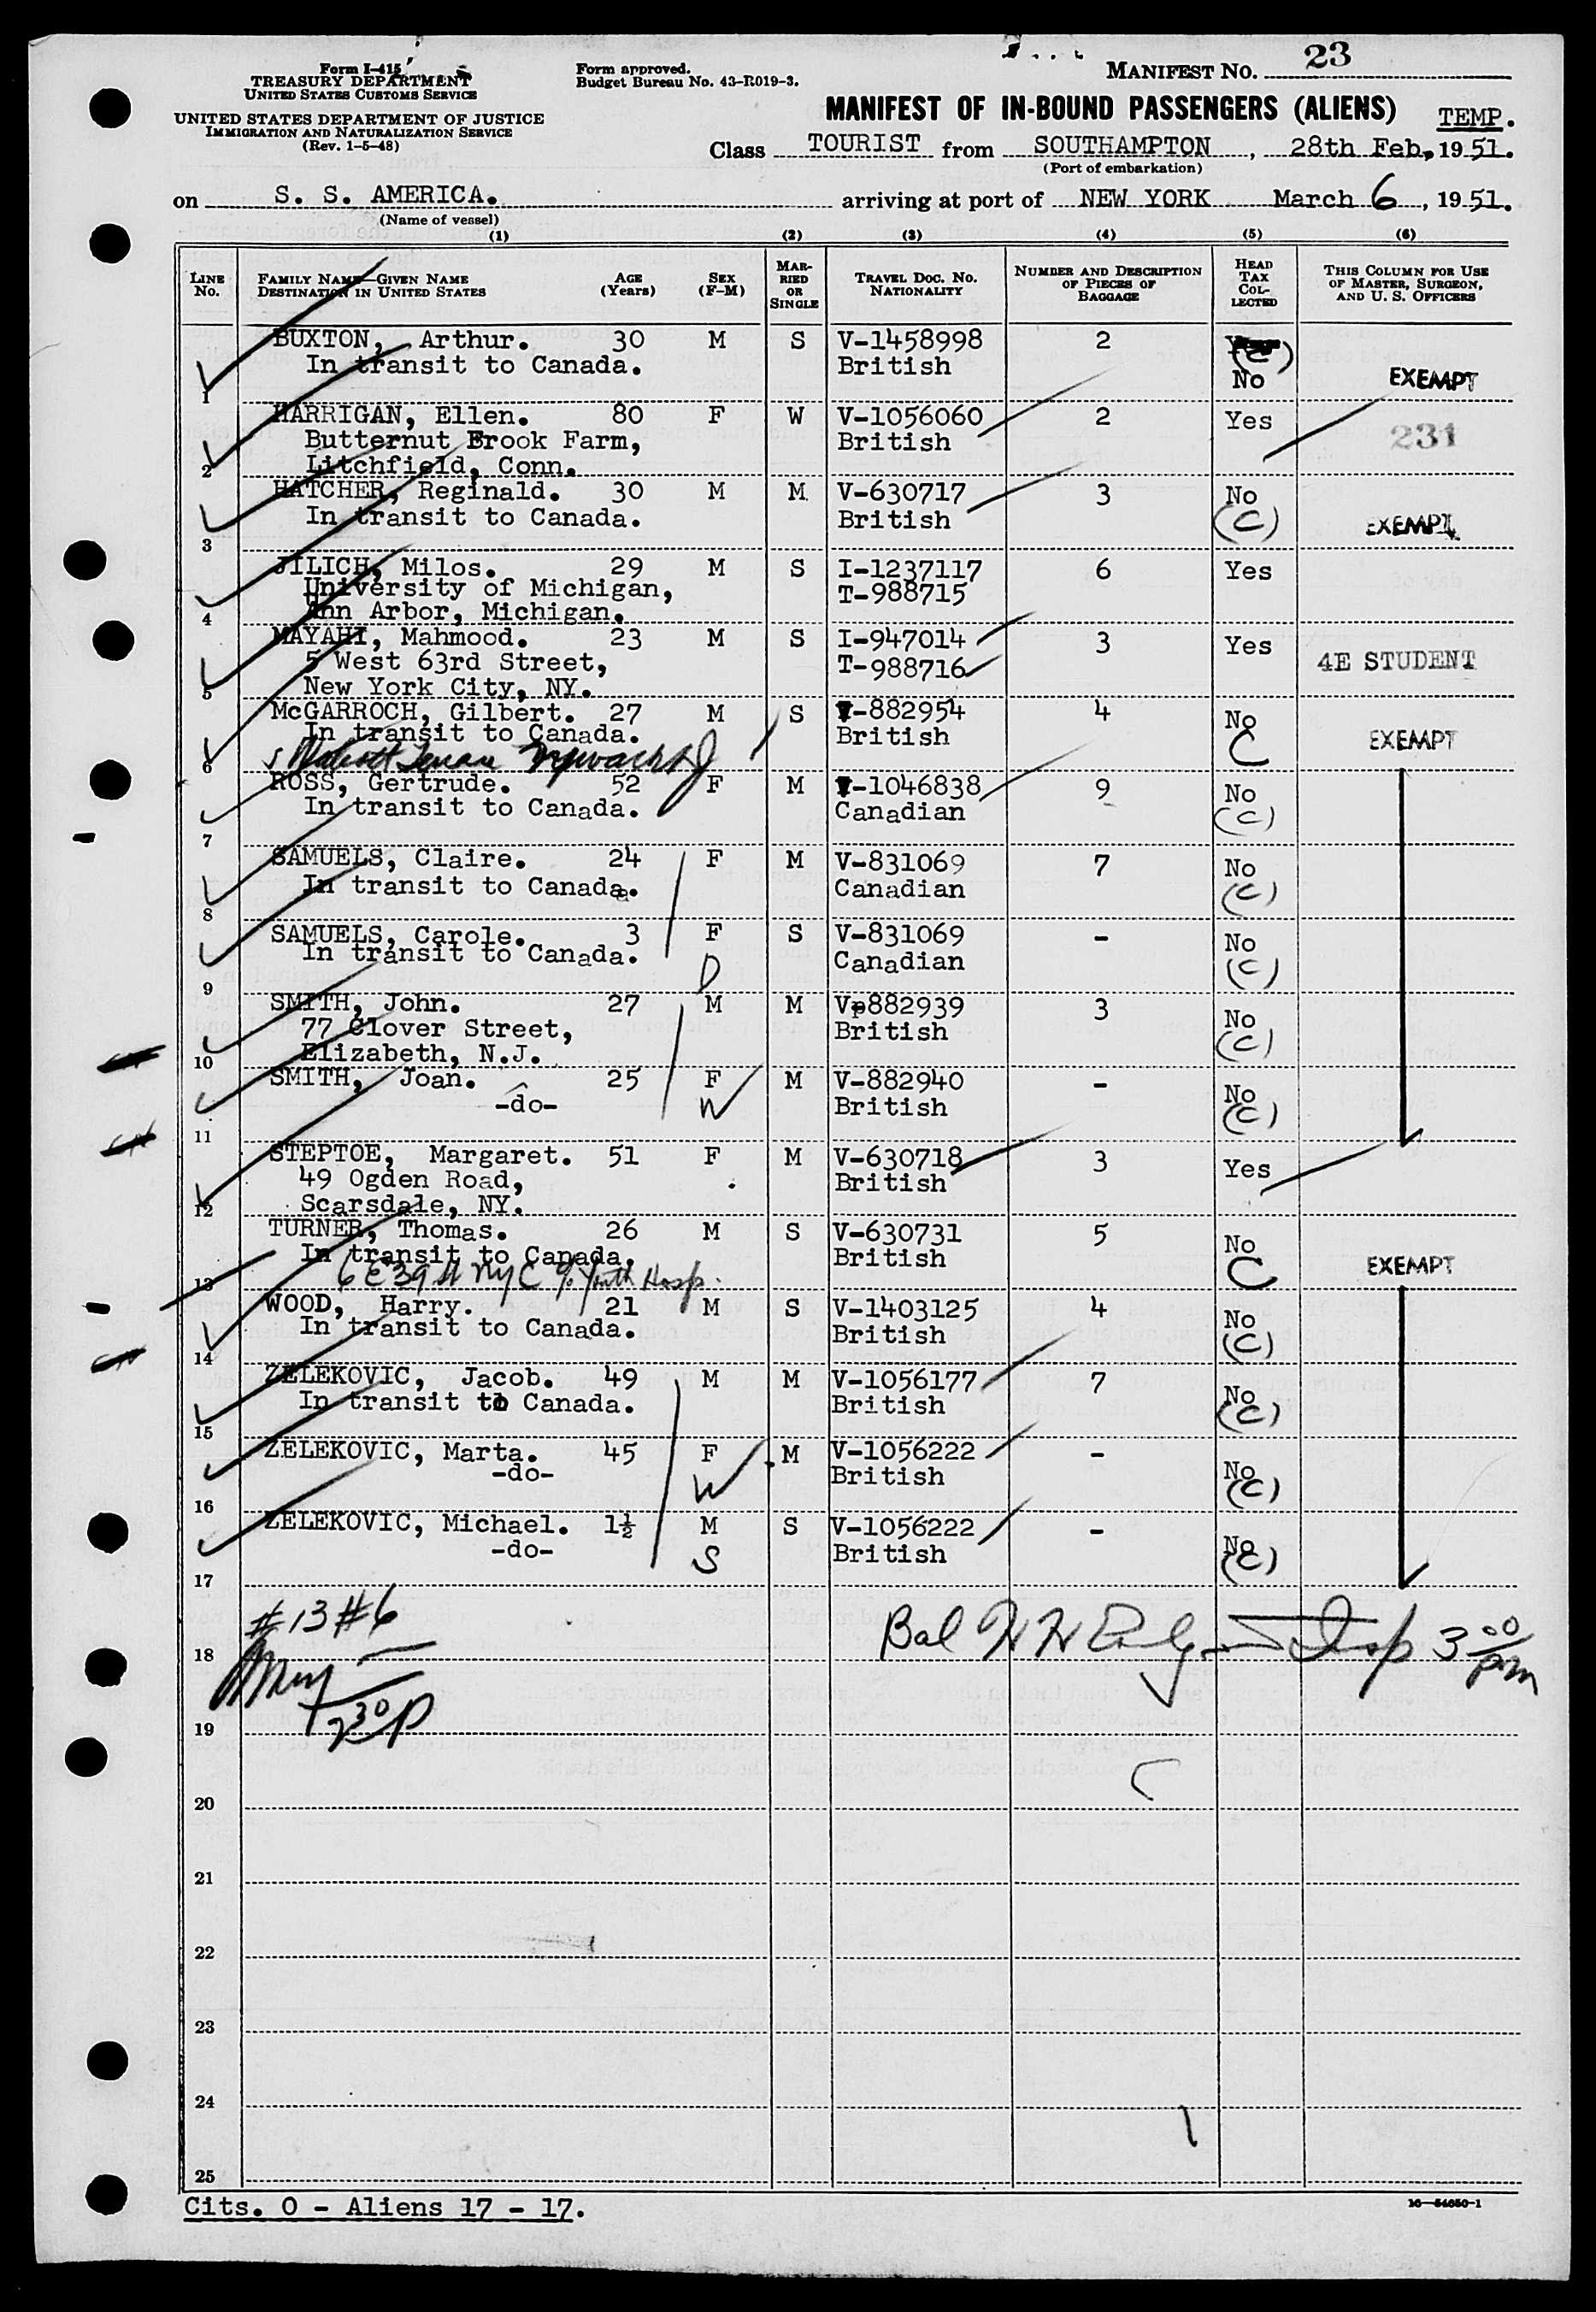 Form I-415
TREASURY DEPARTMENT
UNITED STATES CUSTOMS SERVICE
UNITED STATES DEPARTMENT OF JUSTICE
IMMIGRATION AND NATURALIZATION SERVICE
(Rev. 1-5-48)
Form approved.
Budget Bureau No. 43-R019-3.
MANIFEST NO. 23
MANIFEST OF IN-BOUND PASSENGERS (ALIENS) TEMP.
Class TOURIST from SOUTHAMPTON, 28th Feb, 1951.
(Port of embarkation)
on S. S. AMERICA. arriving at port of NEW YORK March 6, 1951.
(Name of vessel)
(1) (2) (3) (4) (5) (6)
LINE No.
FAMILY NAME—GIVEN NAME
DESTINATION IN UNITED STATES
AGE (Years)
SEX (F-M)
MARRIED OR SINGLE
TRAVEL DOC. NO.
NATIONALITY
NUMBER AND DESCRIPTION OF PIECES OF BAGGAGE
HEAD TAX COLLECTED
THIS COLUMN FOR USE OF MASTER, SURGEON, AND U. S. OFFICERS
1 BUXTON, Arthur. 30 M S V-1458998 2 (C)
In transit to Canada. British No EXEMPT
2 HARRIGAN, Ellen. 80 F W V-1056060 2 Yes 231
Butternut Brook Farm, British
Litchfield, Conn.
3 HATCHER, Reginald. 30 M M. V-630717 3 No
In transit to Canada. British (C) EXEMPT
4 JILICH, Milos. 29 M S I-1237117 6 Yes
University of Michigan, T-988715
Ann Arbor, Michigan.
5 MAYAHI, Mahmood. 23 M S I-947014 3 Yes 4E STUDENT
5 West 63rd Street, T-988716
New York City, NY.
6 McGARROCH, Gilbert. 27 M S V-882954 4 No EXEMPT
In transit to Canada. British C
7 ROSS, Gertrude. 52 F M V-1046838 9 No
In transit to Canada. Canadian (C)
8 SAMUELS, Claire. 24 F M V-831069 7 No
In transit to Canada. Canadian (C)
9 SAMUELS, Carole. 3 F S V-831069 - No
In transit to Canada. D Canadian (C)
10 SMITH, John. 27 M M Vp882939 3 No
77 Clover Street, British (C)
Elizabeth, N.J.
11 SMITH, Joan. 25 F M V-882940 - No
-do- W British (C)
12 STEPTOE, Margaret. 51 F M V-630718 3 Yes
49 Ogden Road, British
Scarsdale, NY.
13 TURNER, Thomas. 26 M S V-630731 5 No EXEMPT
In transit to Canada. British C
6 E 39 St NYC % Youth Hosp.
14 WOOD, Harry. 21 M S V-1403125 4 No
In transit to Canada. British (C)
15 ZELEKOVIC, Jacob. 49 M M V-1056177 7 No
In transit to Canada. British (C)
16 ZELEKOVIC, Marta. 45 F M V-1056222 - No
-do- W British (C)
17 ZELEKOVIC, Michael. 1½ M S V-1056222 - No
-do- S British (C)
#13 #6
18 Bal Insp 3 00 pm
2 30 P
19
20
21
22
23
24
25
Cits. 0 - Aliens 17 - 17.
16-54650-1